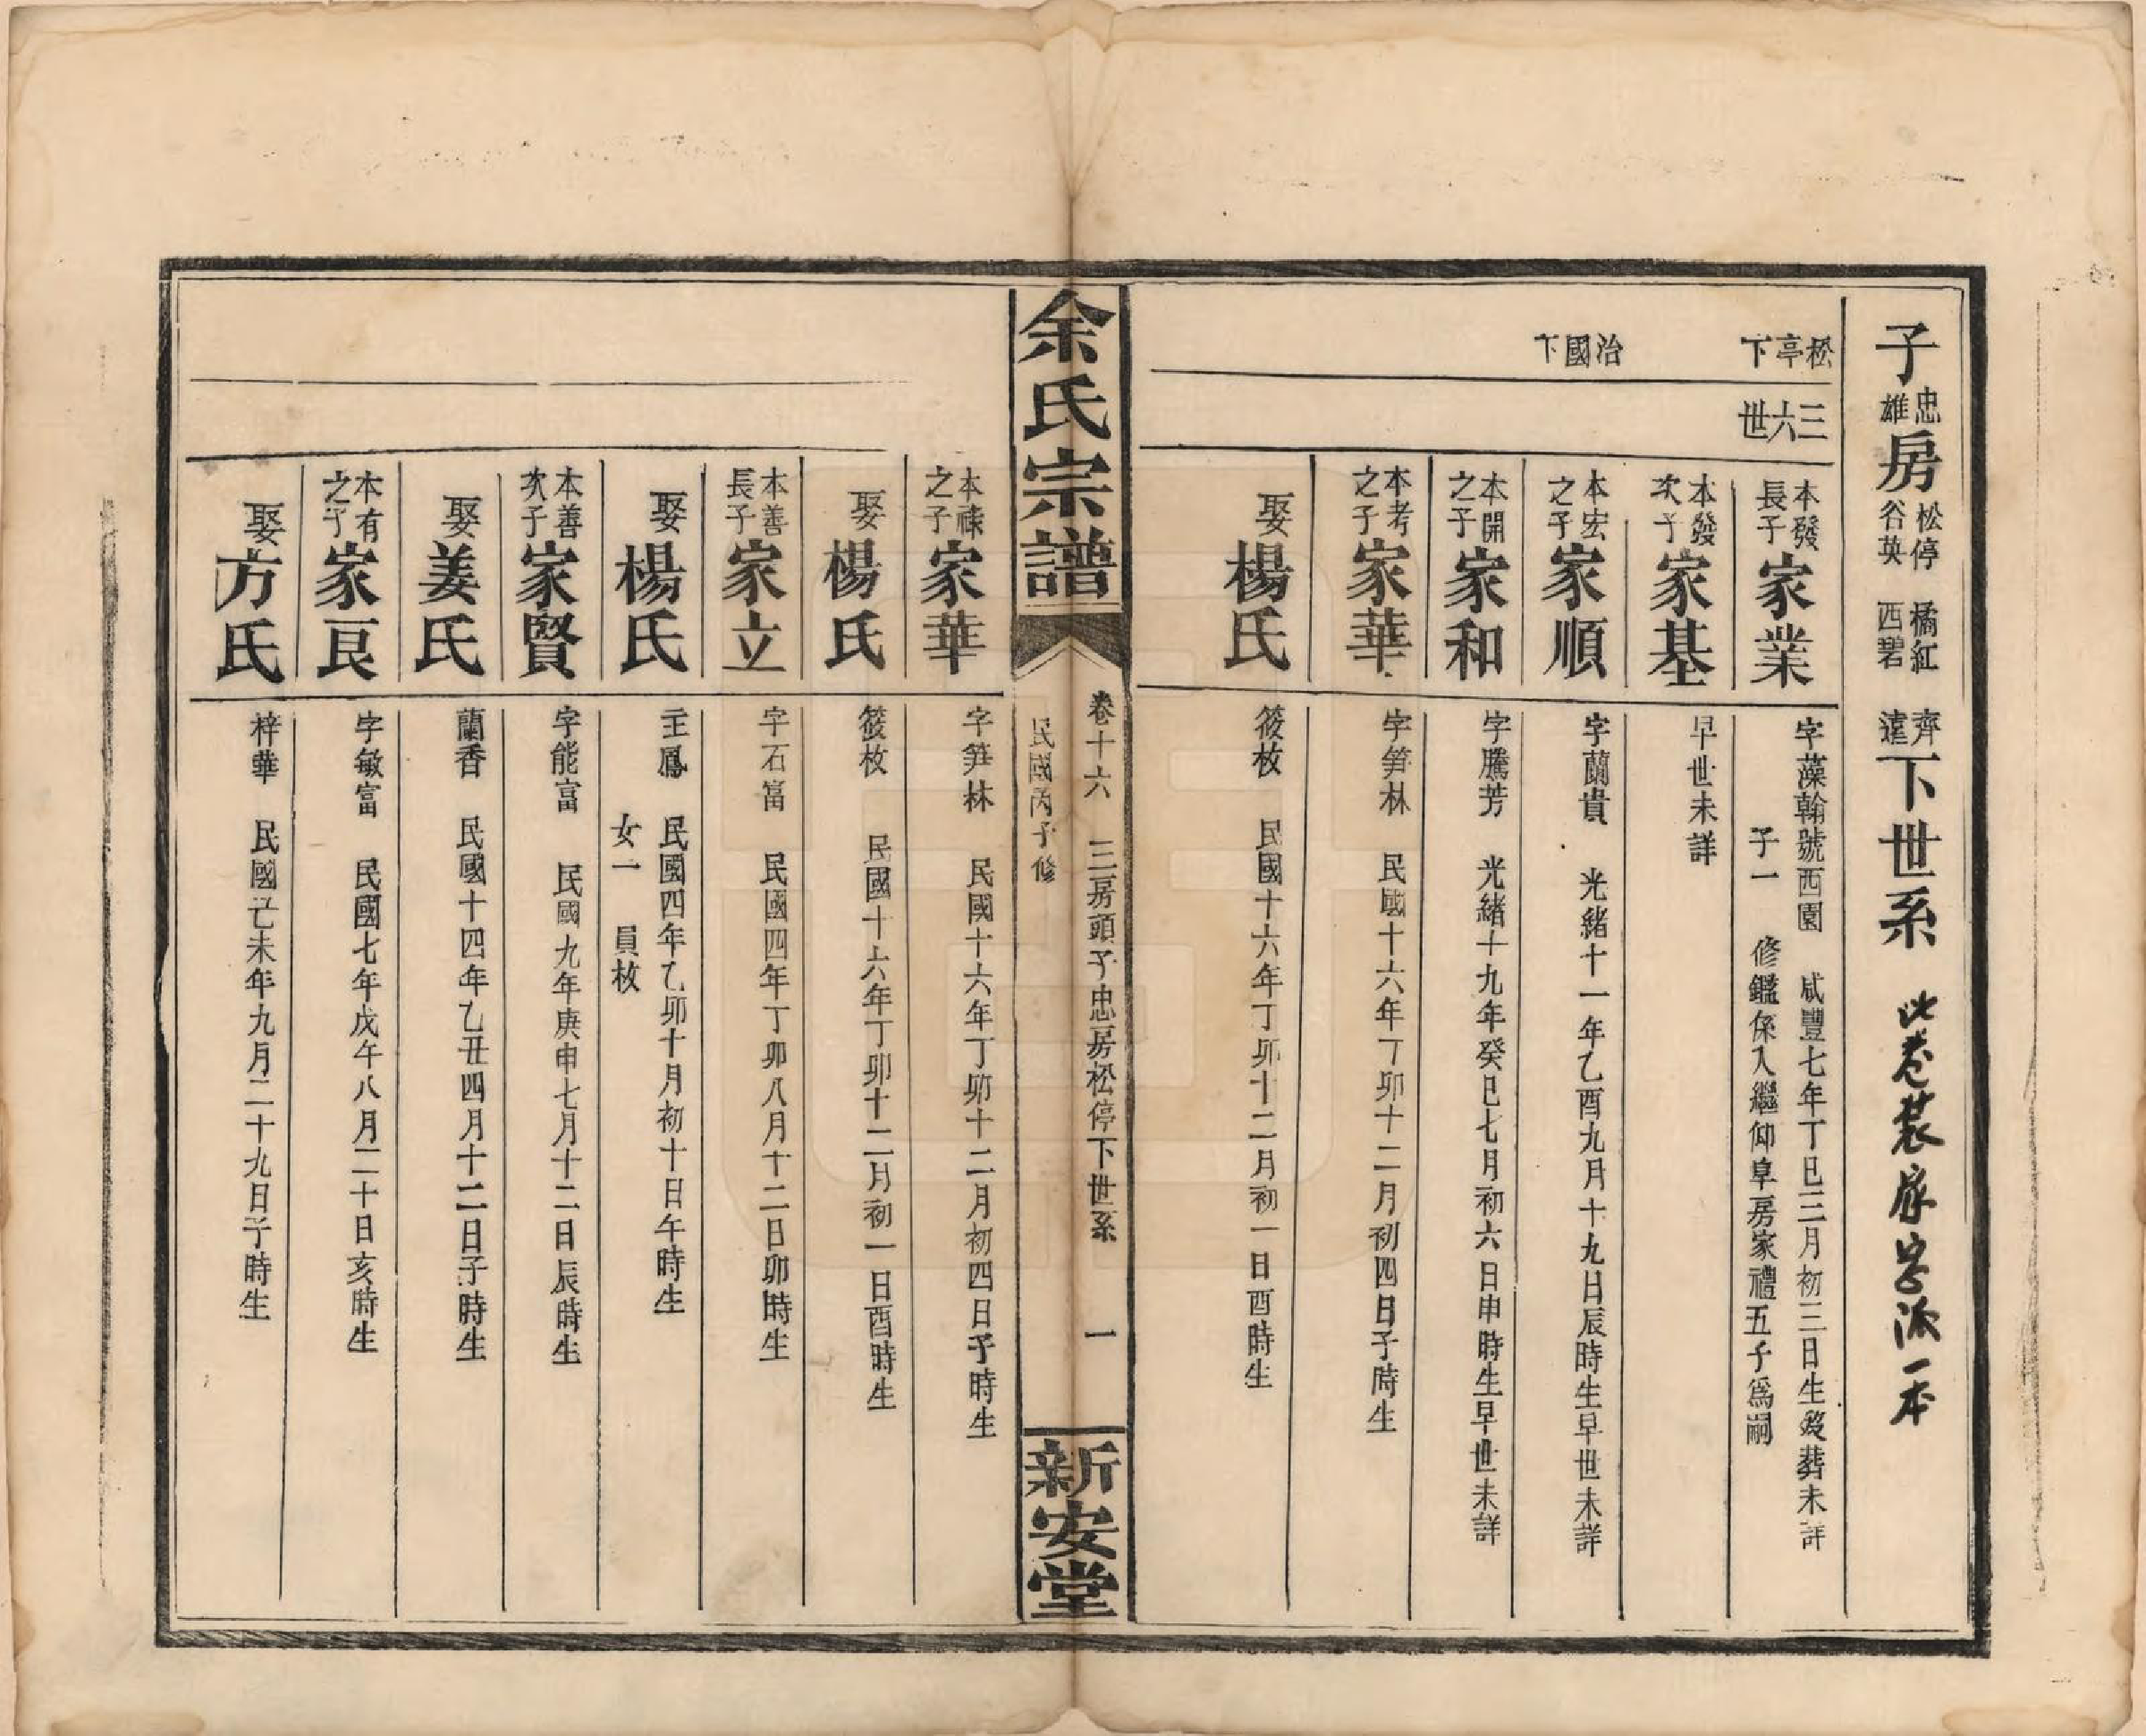 子忠雄房松停谷英橘紅西碧齊遠下世系 此卷裝家字派一本
松亭下
治國下
三六世
本發長子家業
字藻翰號西園 咸豐七年丁巳三月初三日生歿葬未詳
子一 修鑑係入繼仰阜房家禮五子為嗣
本發次子家基
早世未詳
本宏之子家順
字蘭貴 光緒十一年乙酉九月十九日辰時生早世未詳
本開之子家和
字騰芳 光緒十九年癸巳七月初六日申時生早世未詳
本考之子家華
字筍林 民國十六年丁卯十二月初四日子時生
娶楊氏
筱枚 民國十六年丁卯十二月初一日酉時生
余氏宗譜
卷十六 三房頭子忠房松停下世系 一
民國丙子修
新安堂
本祿之子家華
字筍林 民國十六年丁卯十二月初四日子時生
娶楊氏
筱枚 民國十六年丁卯十二月初一日酉時生
本善長子家立
字石富 民國四年丁卯八月十二日卯時生
娶楊氏
玉鳳 民國四年乙卯十月初十日午時生
女一 員枚
本善次子家賢
字能富 民國九年庚申七月十二日辰時生
娶姜氏
蘭香 民國十四年乙丑四月十二日子時生
本有之子家良
字敏富 民國七年戊午八月二十日亥時生
娶方氏
梓華 民國己未年九月二十九日子時生